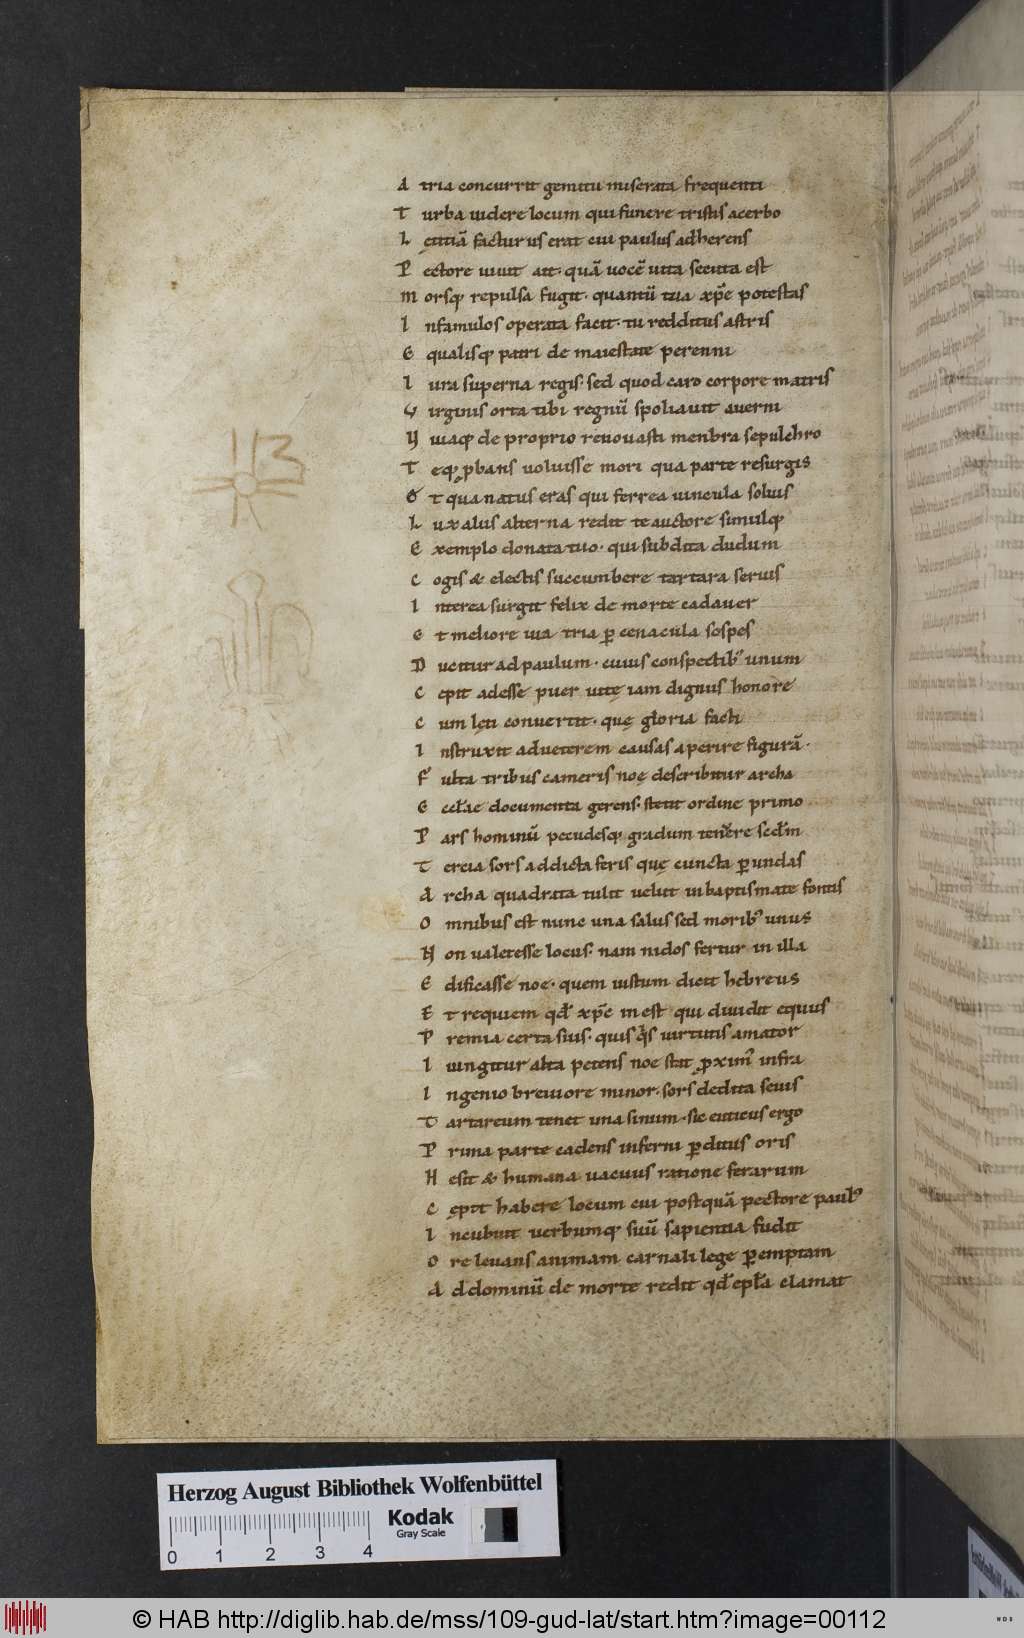 A tria concurrit gemitu miserata frequenti
T urba uidere locum qui funere tristis acerbo
L ętitiā facturus erat cui paulus adherens
P ectore uiuit ait· quā uocē uita secuta est
M orsq; repulsa fugit· quantū tua xp̄e potestas
I nfamulos operata facit· tu redditus astris
E qualisq; patri de maiestate perenni
I ura superna regis· sed quod caro corpore matris
V irginis orta tibi regnū spoliauit auerni
V iuaq; de proprio renouasti menbra sepulchro
T eq; ꝓbans uoluisse mori qua parte resurgis
E t qua natus eras qui ferrea uincula soluis
L ux alius alterna redit te auctore simulq;
E xemplo donata tuo· qui subdita dudum
C ogis & electis succumbere tartara seruis
I nterea surgit felix de morte cadauer
E t meliore uia tria ꝑ cenacula sospes
D ucitur ad paulum· cuius conspectib; unum
C epit adesse puer uitę iam dignus honore
C um lęti conuertit· quę gloria facti
I nstruxit adueterem causas aperire figurā·
F ulta tribus cameris noę describitur archa
E ccl̄ae documenta gerens· stetit ordine primo
P ars hominū pecudesq; gradum tenuere sc̄dm
T ercia sors addicta feris quę cuncta ꝑ undas
A rcha quadrata tulit uelut inbaptismate fontis
O mnibus est nunc una salus sed morib; unus
N on ualet esse locus· nam nidos fertur in illa
E dificasse noe· quem iustum dicit hebreus
E t requiem qd̄ xp̄e in est qui diuidit equus
P remia certa suis· quis q̇s uirtutis amator
I ungitur alta petens noe stat ꝓxim; infra
I ngenio breuiore minor· sors dedita seuis
T artareum tenet una sinum· sic euticus ergo
P rima parte cadens inferni ꝑditus oris
H esit & humana uacuus ratione ferarum
C ępit habere locum cui postquā pectore paul;
I ncubuit uerbumq; suū sapientia fudit
O re leuans animam carnali lege ꝑemptam
A ddominū de morte redit qd̄ epl̄a clamat
113
Herzog August Bibliothek Wolfenbüttel
Kodak
Gray Scale
0 1 2 3 4
© HAB http://diglib.hab.de/mss/109-gud-lat/start.htm?image=00112
WDB